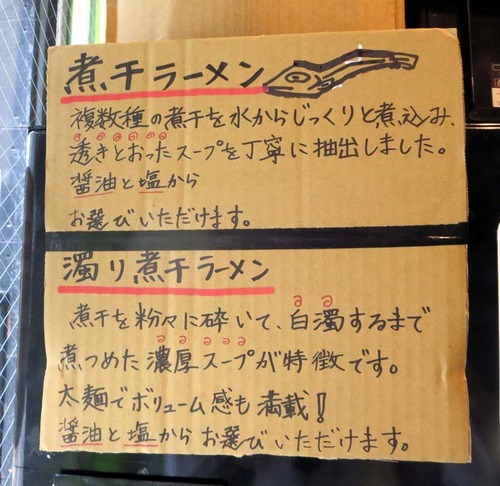 煮干ラーメン
複数種の煮干を水からじっくりと煮込み、
透きとおったスープを丁寧に抽出しました。
醤油と塩から
お選びいただけます。
濁り煮干ラーメン
煮干を粉々に砕いて、白濁するまで
煮つめた濃厚スープが特徴です。
太麺でボリューム感も満載!
醤油と塩からお選びいただけます。